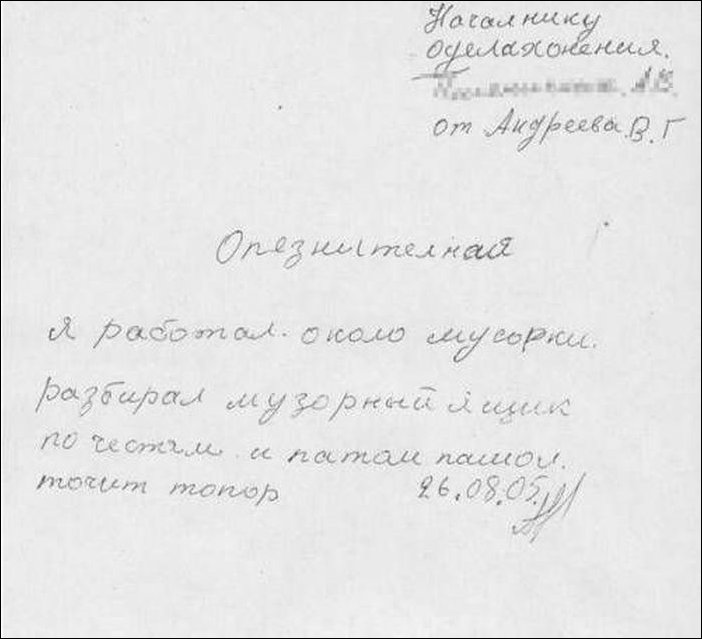 Началнику
оделахонения.
от Андреева.В.Г
Опезнителная
я работал. около мусорки.
разбирал музорный ящик
по честям. и патом пашол.
точит топор 26.08.05.